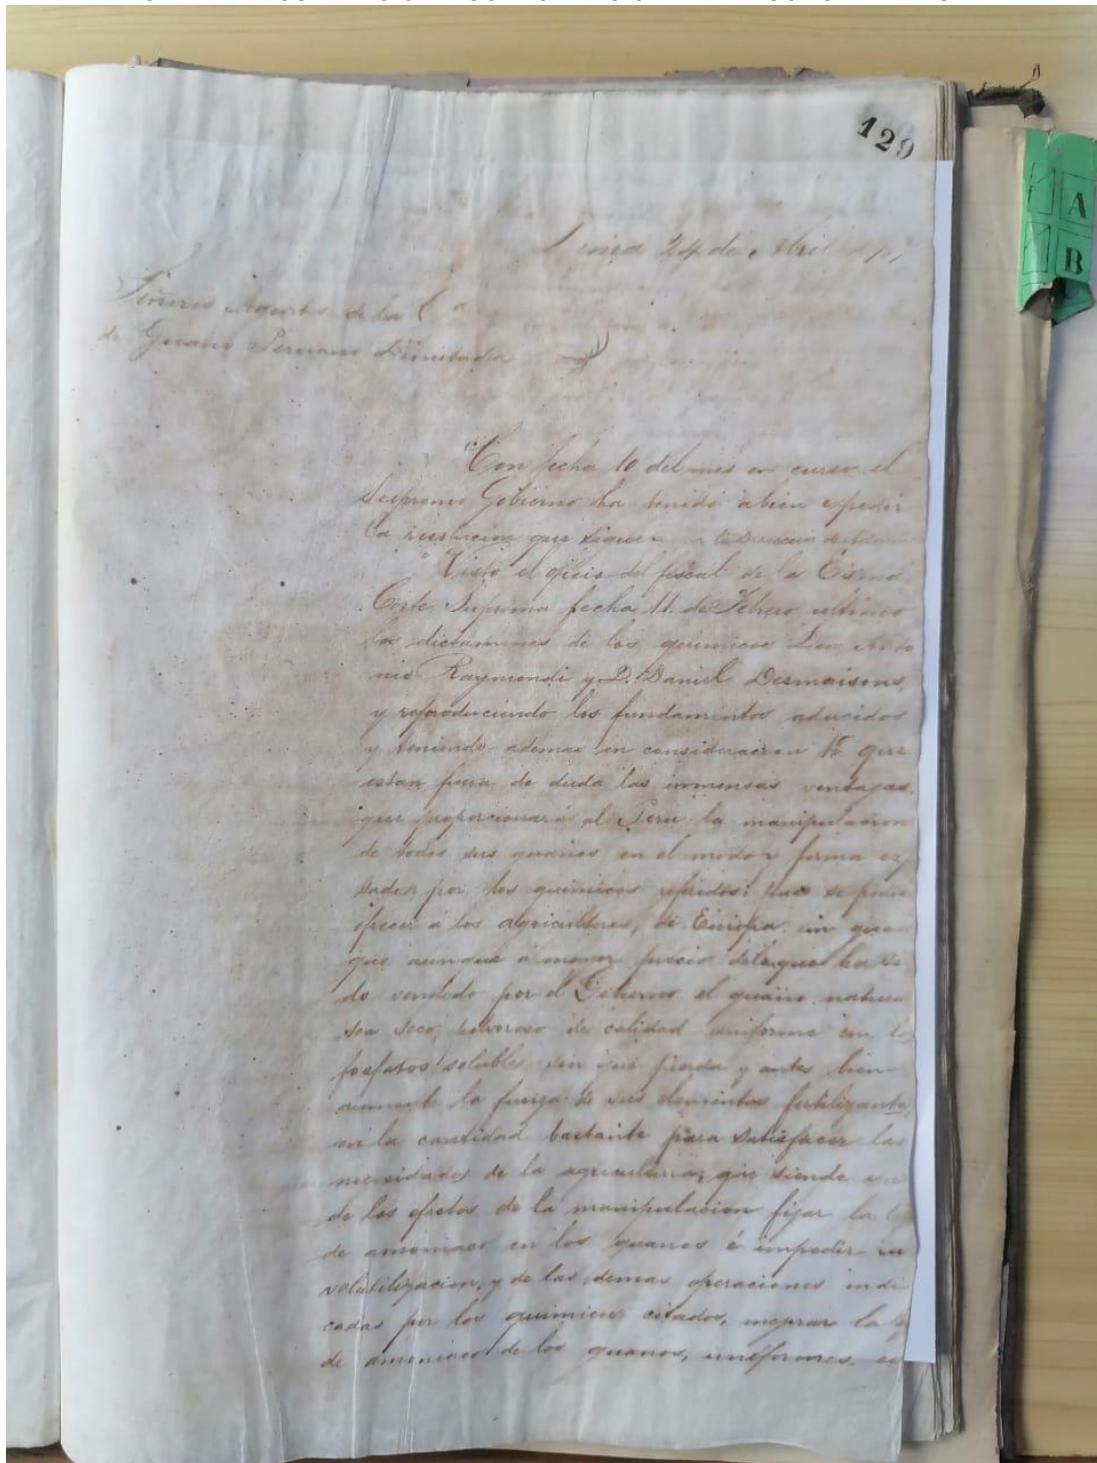 129
Lima 24 de Abril
Señores Agentes de la Cª
de Guano Peruano Limitada
"Con fecha 10 del mes en curso el
Supremo Gobierno ha tenido a bien espedir
la resolucion que sigue
"Visto el oficio del fiscal de la Exma
Corte Suprema fecha 11 de Febrero ultimo
los dictamenes de los quimicos Don Anto
nio Raymondi y D. Daniel Desmaisons,
y reproduciendo los fundamentos aducidos
y teniendo ademas en consideracion 1º que
estan fuera de duda las immensas ventajas
que proporcionará al Peru la manipulacion
de todos sus guanos en el modo y forma
por los quimicos referidos: pues se
ofrecer á los agricultores, de Europa un
que aunque á menor precio del que ha si
do vendido por el Gobierno el guano
sea seco, polvoroso de calidad uniforme con
fosfatos solubles sin que pierda y antes bien
aumente la fuerza de sus elementos fertilizantes
en la cantidad bastante para satisfacer las
necesidades de la agricultura, que siendo uno
de los efectos de la manipulacion fijar la
de amoniaco en los guanos é impedir su
volatilizacion, y de las demas operaciones indi
cadas por los quimicos citados, mejorar la
de amoniaco de los guanos, uniformes
A
B